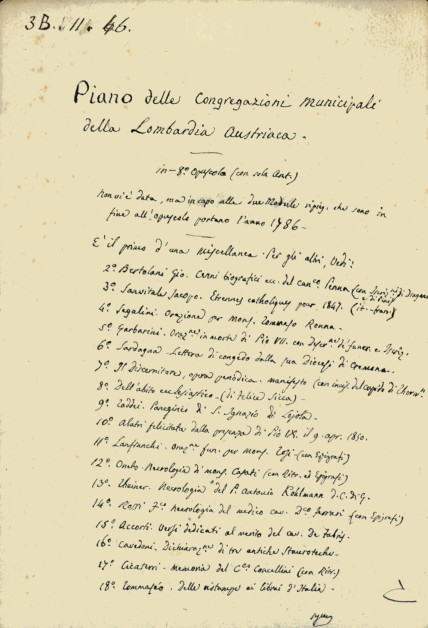 3B. II. 46.
Piano delle Congregazioni Municipali
della Lombardia Austriaca.
in-8º Opuscolo (con sola Ant.)
Non vi è data, ma in capo alle due Module che sono in
fine all'opuscolo portano l'anno 1786.
È il primo d'una Miscellanea. Per gli altri, Vedi:
2º Bertolani Gio. Cenni biografici ecc. del can.co Penna (con
3º Sanvitale Jacopo. Etrennes catholiques pour 1847. (it.-franc.)
4º Segalini. Orazione per Mons. Tommaso Ronna.
5º Garbarini. Oraz.ne in morte di Pio VII. con di funer. e Iscriz.
6º Sardagna Lettera di congedo dalla sua Diocesi di Cremona.
7º Il Discernitore, opera periodica. manifesto (con
8º Dell'abito ecclesiastico - (di Felice Sicca) -
9º Taddei. Panegirico di S. Ignazio di Lojola.
10º Alatri felicitata dalla presenza di Pio IX. il 9. apr. 1850.
11º Lanfranchi. Oraz.ne fun. per Mons. (con Epigrafi)
12º Oneto Necrologia di Mons. (con Ritr. ed Epigrafi)
13º Necrologia del P. Antonio Kohlmann d. C. di G.
14º Rossi Necrologia del medico cav. D.re Ferrari (con Epigrafi)
15º Accorti. Versi dedicati al merito del cav. De Fabris.
16º Cavedoni. Dichiaraz.ne di tre antiche Stauroteche.
17º Memoria del C.te (con Ritr.)
18º Tommaséo. delle ristampe ai libroni d'Italia.